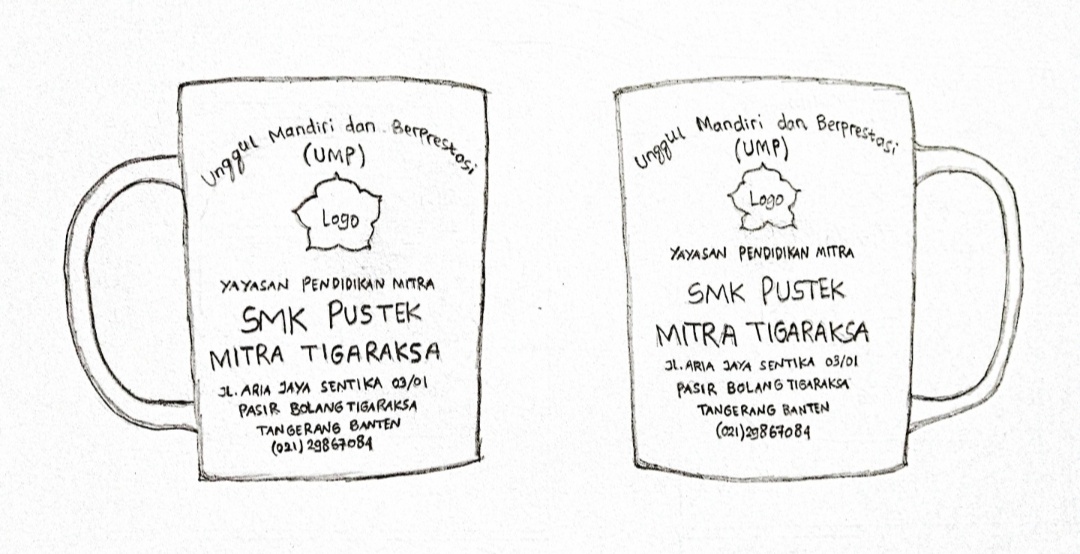 Unggul Mandiri dan Berprestasi
(UMP)
Logo
YAYASAN PENDIDIKAN MITRA
SMK PUSTEK
MITRA TIGARAKSA
JL. ARIA JAYA SENTIKA 03/01
PASIR BOLANG TIGARAKSA
TANGERANG BANTEN
(021) 29867084
Unggul Mandiri dan Berprestasi
(UMP)
Logo
YAYASAN PENDIDIKAN MITRA
SMK PUSTEK
MITRA TIGARAKSA
JL. ARIA JAYA SENTIKA 03/01
PASIR BOLANG TIGARAKSA
TANGERANG BANTEN
(021) 29867084